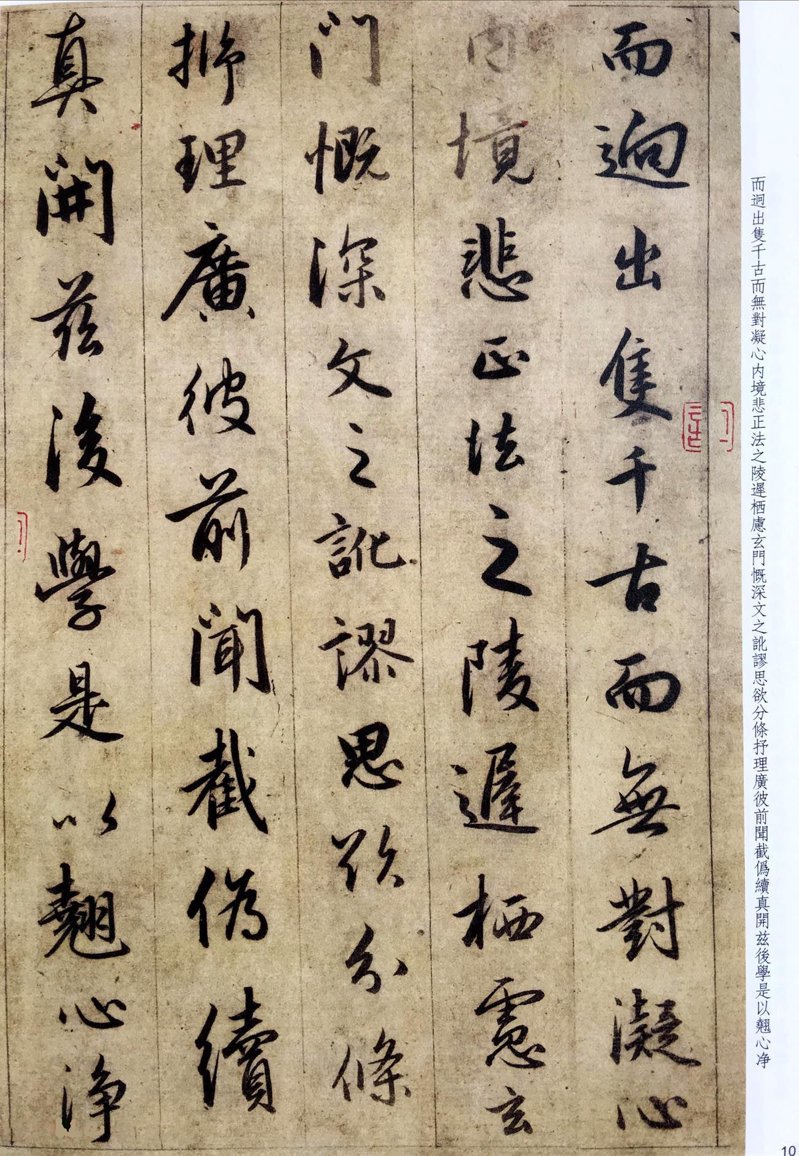 而迥出隻千古而無對凝心
内境悲正法之陵遲栖慮玄
門慨深文之訛謬思欲分條
抒理廣彼前聞截僞續
真開兹後學是以翹心淨
而迥出隻千古而無對凝心内境悲正法之陵遲栖慮玄門慨深文之訛謬思欲分條抒理廣彼前聞截僞續真開兹後學是以翹心净
10